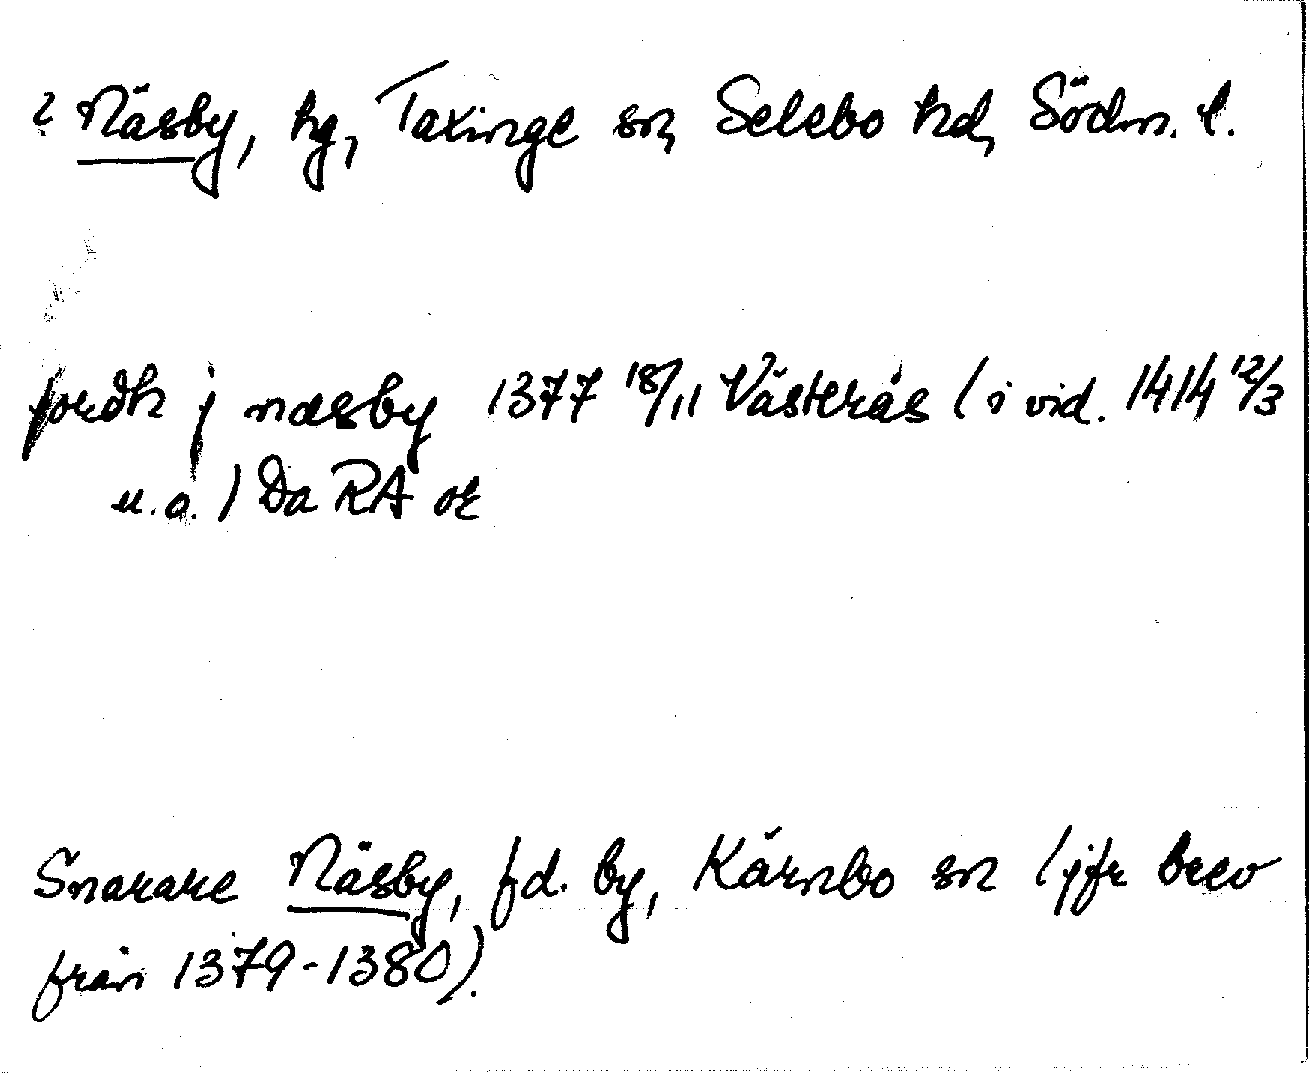 ? Näsby, hg, Taxinge sn, Selebo hd, Södm. l.
jordh j næsby 1377 18/11 Västerås (i vid. 1414 12/3
u.o.) Da RA or
Snarare Näsby, fd. by, Kärnbo sn (jfr brev
från 1379-1380).